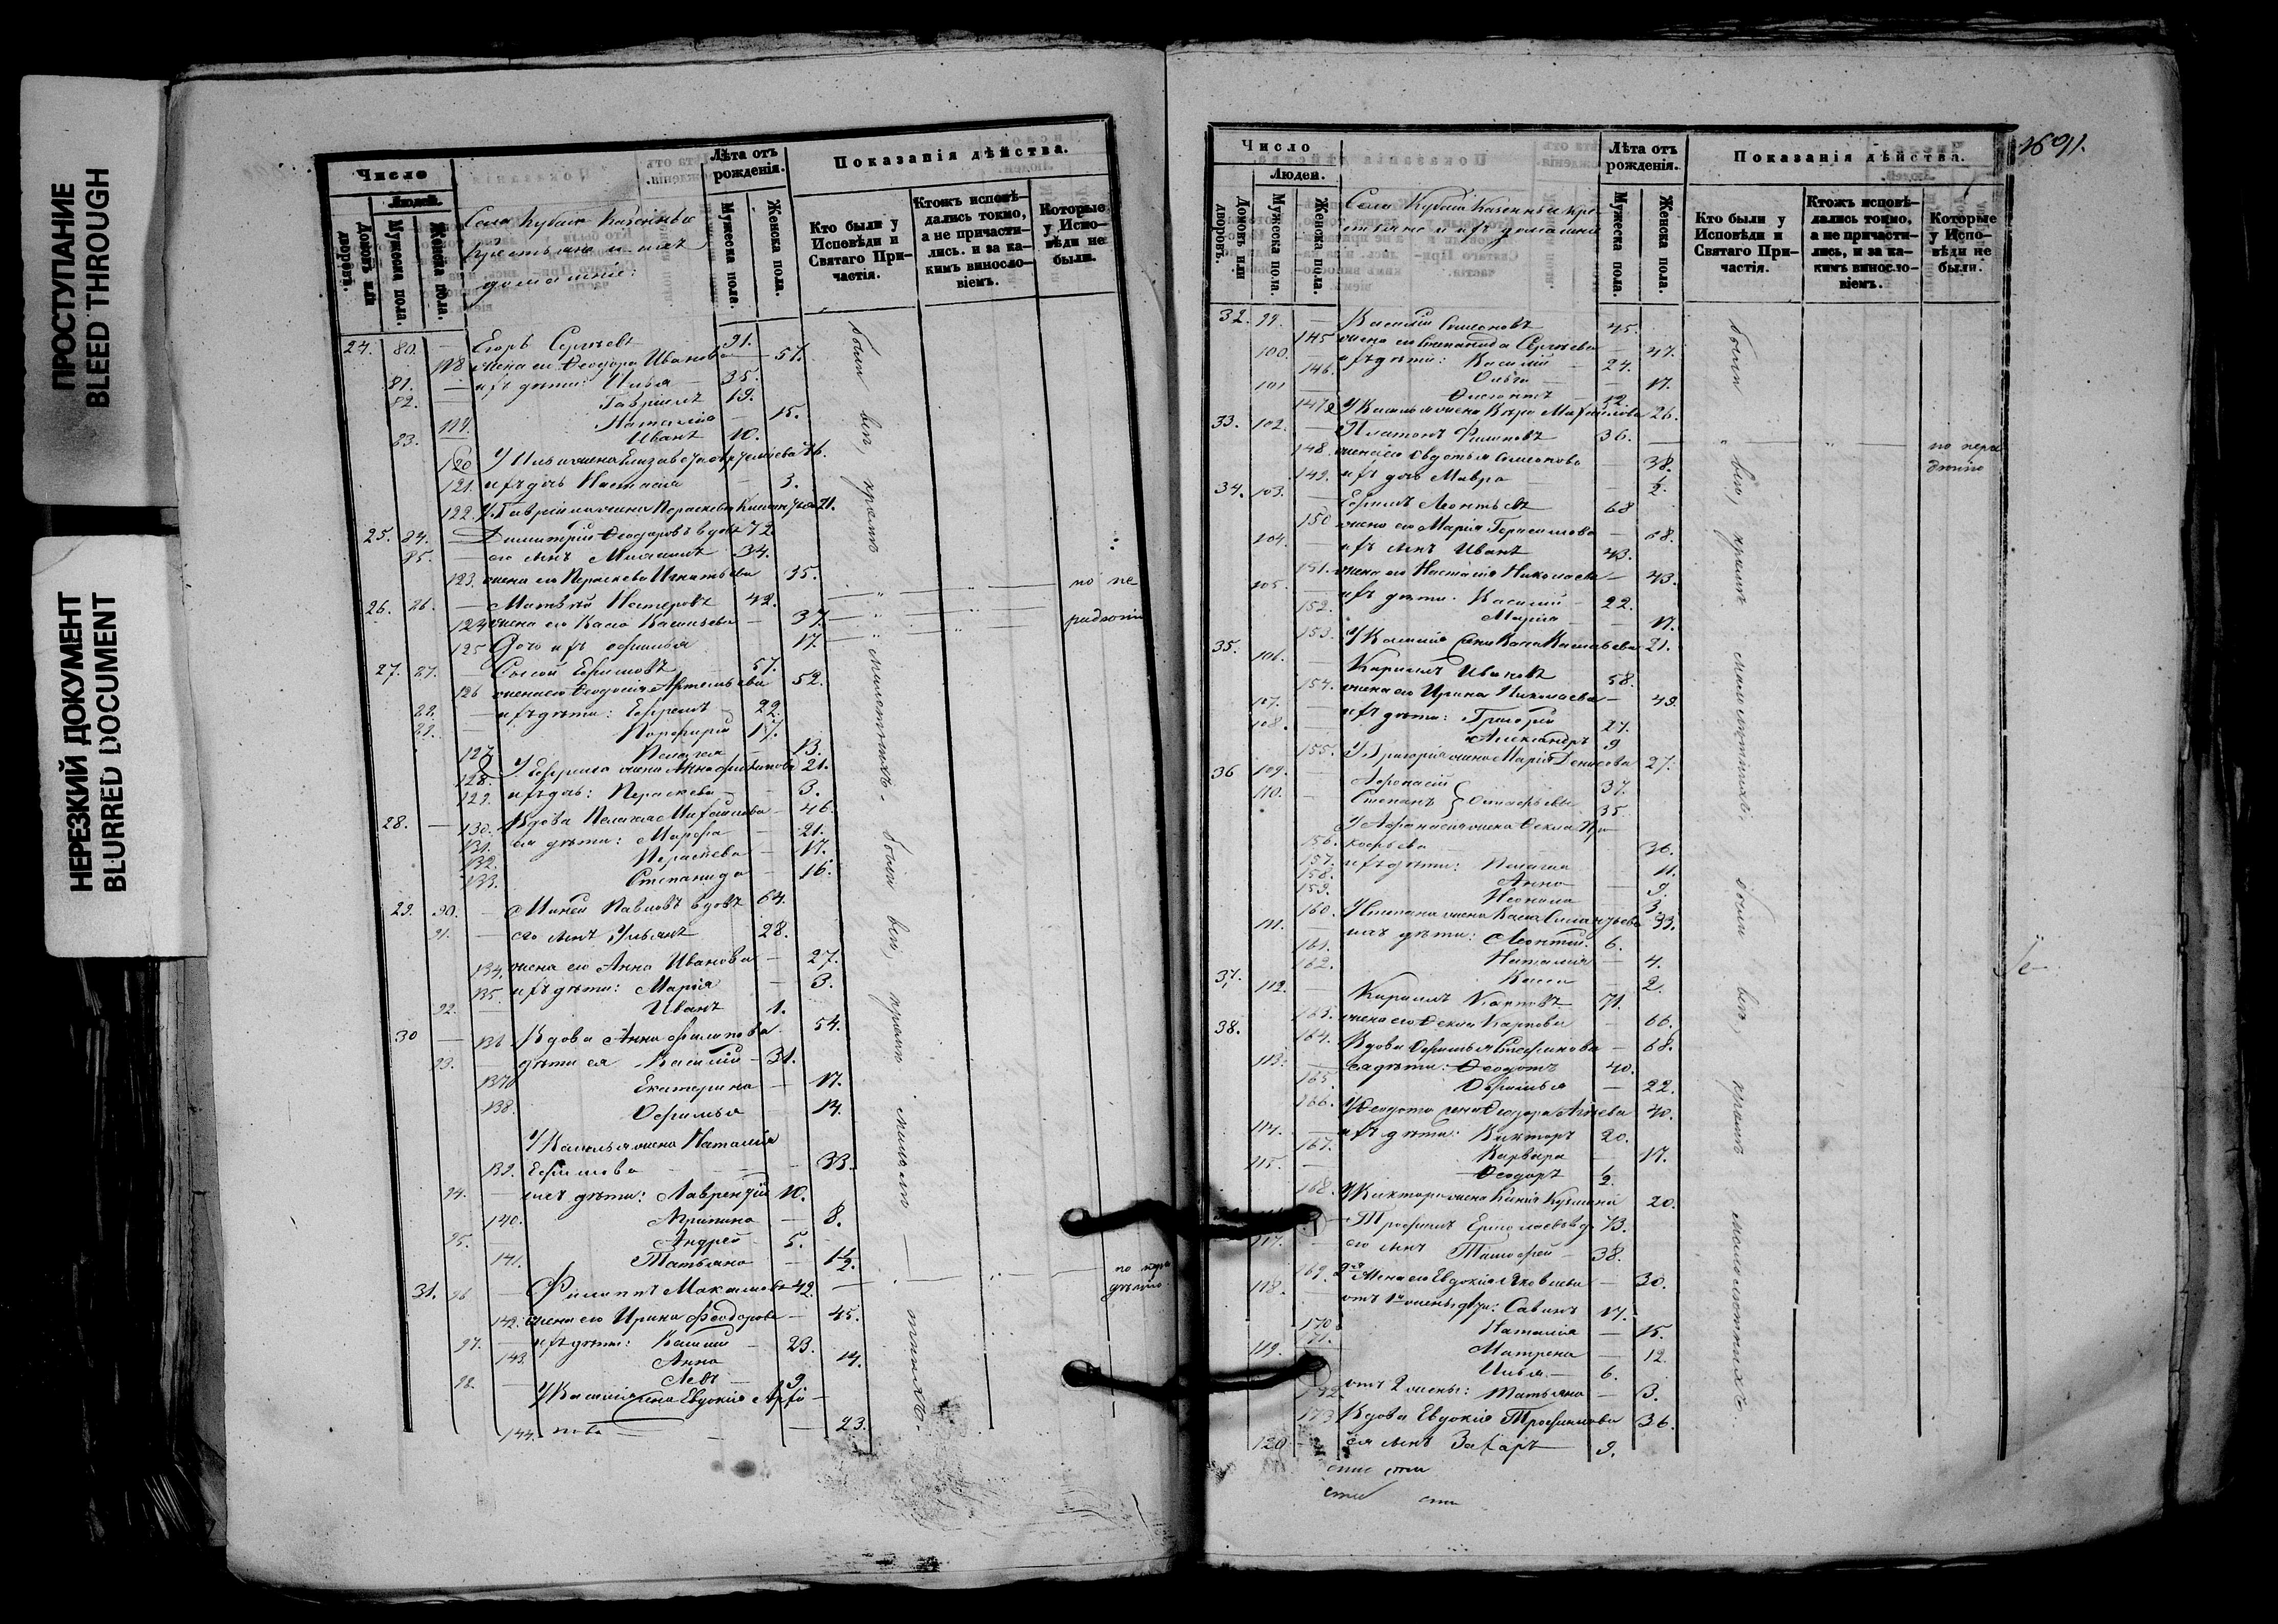 ПРОСТУПАНИЕ
BLEED THROUGH
НЕРЕЗКИЙ ДОКУМЕНТ
BLURRED DOCUMENT
Число
Людей.
Домовъ или дворовъ.
Мужеска пола.
Женска пола.
Села Кубаи Казенные
крестьяне и ихъ
домашніе:
Лѣта отъ рожденія.
Мужеска пола.
Женска пола.
Показанія дѣйства.
Кто были у Исповѣди и Святаго Причастія.
Ктожъ исповѣдались токмо, а не причастились. и за какимъ винословіемъ.
Которые у Исповѣди не были.
24. 80. — Егоръ Сергѣевъ 91.
118 жена его Ѳеодора Иванова — 57.
81. — ихъ дѣти: Илья — 35.
82. — Гавріилъ 19.
119. Наталія — 15.
83. — Иванъ 10.
120 У Ильи жена Елизавета 36.
121. ихъ дочь Настасія — 3.
122. У Гавріила жена Параскева 21.
25. 84. — Димитрій Ѳеодоровъ вдовъ 72.
85. — его сынъ Михаилъ 34.
123. жена его Параскева Игнатьева 35.
26. 86. — Матѳей Нестеровъ 42. по не
124 жена его Васса Васильева — 37 радѣнію
125 Дочь ихъ Евфимья 17.
27. 87. — Сысой Ефимовъ 57.
126 жена его Ѳеодосія Артемьева 52.
88. — ихъ дѣти: Ефремъ — 22.
89. — Порфирій 17.
127 Пелагея — 13.
128. У Ефрема жена Анна Филипова 21.
129. ихъ дочь: Параскева — 3.
28. — 130. Вдова Пелагея Михайлова — 46.
131. ея дѣти: Марфа — 21.
132. Параскева — 17.
133. Степанида — 16.
29. 90. — Миней Павловъ вдовъ 64.
91. — его сынъ Ульянъ 28.
134. жена его Анна Иванова — 27.
135. ихъ дѣти: Марія — 3.
92. — Иванъ 1.
30 — 136 Вдова Анна Филипова 54.
93. — дѣти ея Василій — 31.
137 Екатерина — 17.
138. Евфимья — 14.
У Василья жена Наталія
139. Ефимова — 33.
94. — ихъ дѣти: Лаврентій 10.
140. Агрипина — 8.
95. — Андрей 5.
141. Татьяна — 1½.
31. 96 — Филиппъ Максимовъ 42. по нера
дѣнію
142. жена его Ирина Ѳеодорова — 45.
97. — ихъ дѣти: Василій — 23.
143. Анна 14.
98. — Левъ — 9
У Василія жена Евдокія Архи-
144. пова — 23.
были всѣ, кромѣ малолѣтнихъ. были всѣ, кромѣ малолѣтнихъ.
91.
Число
Людей.
Домовъ или дворовъ.
Мужеска пола.
Женска пола.
Села Кубаи Казенные кре-
стьяне и ихъ домашніе
Лѣта отъ рожденія.
Мужеска пола.
Женска пола.
Показанія дѣйства.
Кто были у Исповѣди и Святаго Причастія.
Ктожъ исповѣдались токмо, а не причастились, и за какимъ винословіемъ.
Которые у Исповѣди не были.
32. 99. — Василій Симеоновъ 45.
145 жена его Степанида Сергѣева — 47.
100. ихъ дѣти: Василій — 24.
146. Ольга — 17.
101 — 12
147 У Василья жена Вѣра Михайлова 26.
33. 102. — Платонъ Филиповъ 36. по нера
148. жена его Евдотья Симеонова — 38. дѣнію
149. ихъ дочь Мавра — ½.
34. 103. — Ефимъ Леонтьевъ 68
150 жена его Марія Герасимова — 68.
104. ихъ сынъ Иванъ 43.
151. жена его Настасія Николаева — 43.
105 — ихъ дѣти. Василій — 22.
152. Марія — 17.
153. У Василія жена Васса Васильева 21.
35. 106. — Кирилъ Ивановъ 58.
154. жена его Ирина Николаева — 49.
107. — ихъ дѣти: Григорій 27.
108. — Александръ 9
155. У Григорія жена Марія Денисова 27.
36 109. — Афонасій 37.
110. — Степанъ 35.
У Афонасія жена Ѳекла Про-
156. кофьева — 36.
157. ихъ дѣти: Пелагія 11.
158. Анна — 9.
159. 3
160. У Степана жена Васса 33.
111. — ихъ дѣти: Леонтій. 6.
161. Наталія — 4.
162. Васса 2.
37. 112. — Кирилъ Карповъ 71.
163. жена его Ѳекла Карпова — 66.
38. 164. Вдова Евфимья Стефанова — 68.
113. — ея дѣти: Ѳеодотъ 40.
165. Евфимья — 22.
166. У Ѳеодота жена Ѳеодора 40.
114. — ихъ дѣти: Викторъ 20.
167. Варвара — 17.
115. — Ѳеодоръ ½.
168. У Виктора жена Ксенія 20.
Трофимъ Ермолаевъ вд. 73.
117. — его сынъ Тимофей — 38.
169. 2я жена его Евдокія Яковлева — 30.
118. — отъ 1й жены дѣти: Савинъ 17.
170 Наталія — 15.
71. Матрена — 12.
119. Илья — 6.
172. отъ 2 жены: Татьяна — 3.
173 Вдова Евдокія Трофимова 36.
120 — ея сынъ Захаръ 9.
были всѣ, кромѣ малолѣтнихъ. были всѣ, кромѣ малолѣтнихъ.